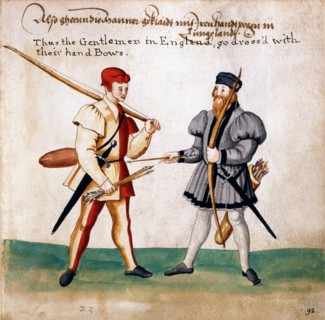 Also gherundie manner geklaidt mit irenhandtpogen in
Enngelandt
Thus the Gentlemen in England, go dress'd with
their hand Bows.
23
92